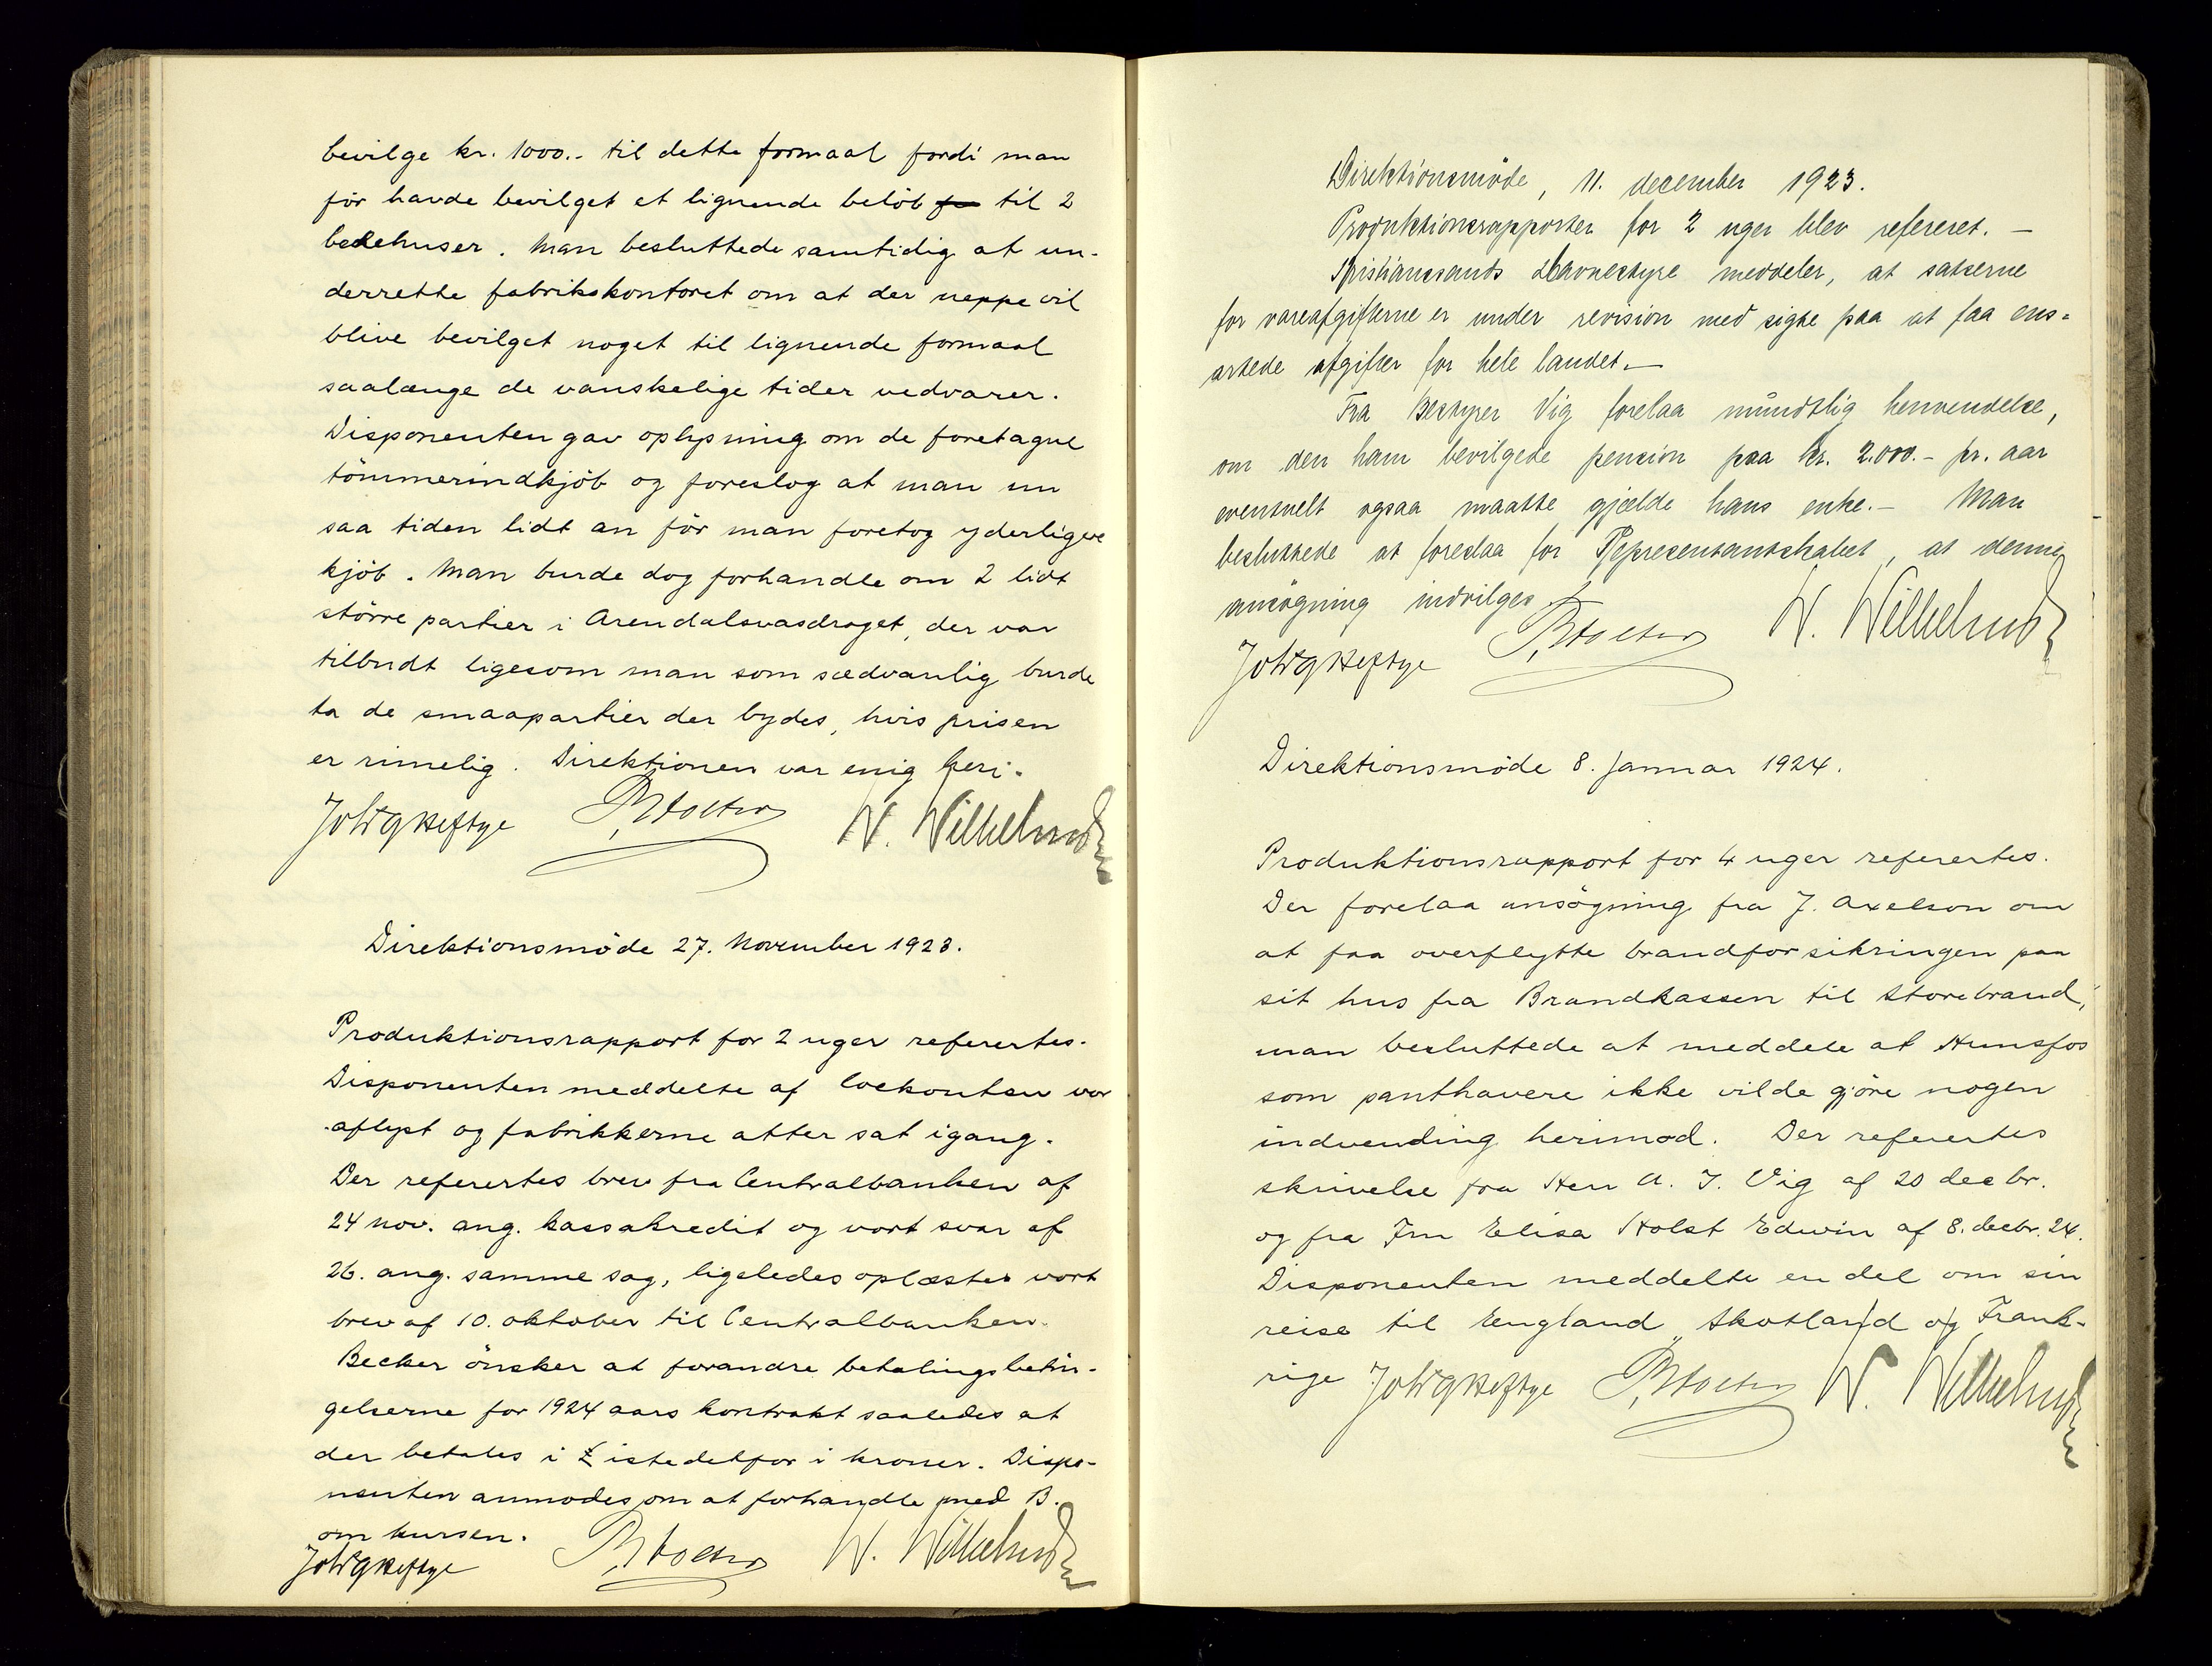 bevilge kr. 1000.- til dette formaal fordi man
för havde bevilget et lignende belöb til 2
bedehuser. Man besluttede samtidig at un-
derrette fabrikskontoret om at der neppe vil
blive bevilget noget til lignende formaal
saalænge de vanskelige tider vedvarer.
Disponenten gav oplysning om de foretagne
tömmerindkjöb og foreslog at man nu
saa tiden lidt an för man foretog yderligere
kjöb. Man burde dog forhandle om 2 lidt
större partier i Arendalsvasdraget, der var
tilbudt ligesom man som sædvanlig burde
ta de smaapartier der bydes, hvis prisen
er rimelig. Direktionen var enig heri.
W. Wilhelmsen
Direktionsmöde 27. November 1923.
Produktionsrapport for 2 uger referertes.
Disponenten meddelte af lockouten var
aflyst og fabrikkerne atter sat igang.
Der referertes brev fra Centralbanken af
24 nov. ang. kassakredit og vort svar af
26. ang. samme sag, ligeledes oplæstes vort
brev af 10. oktober til Centralbanken.
Becker önsker at forandre betalingsbetin-
gelserne for 1924 aars kontrakt saaledes at
der betales i £ istedetfor i kroner. Dispo-
nenten anmodes om at forhandle med B.
om kursen.
W. Wilhelmsen
Direktionsmöde, 11. december 1923.
Produktionsrapporter for 2 uger blev refereret. —
Kristianssands Havnestyre meddeler, at satserne
for vareafgifterne er under revision med sigte paa at faa ens-
artede afgifter for hele landet. —
Fra Bestyrer Vig forelaa mündtlig henvendelse,
om den ham bevilgede pension paa kr. 2.000.- pr. aar
eventuelt ogsaa maatte gjælde hans enke. — Man
besluttede at foreslaa for Representantskabet, at denne
ansögning indvilges.
W. Wilhelmsen
Direktionsmöde 8. Januar 1924.
Produktionsrapport for 4 uger referertes.
Der forelaa ansögning fra J. Axelson om
at faa overflytte brandforsikringen paa
sit hus fra Brandkassen til Storebrand,
man besluttede at meddele at Hunsfos
som panthavere ikke vilde gjöre nogen
indvending herimod. Der referertes
skrivelse fra Herr A. J. Vig af 20 decbr.
og fra Fru Elisa Holst Edwin af 8. decbr. 24.
Disponenten meddelte en del om sin
reise til England, Skotland og Frank-
rige
W. Wilhelmsen